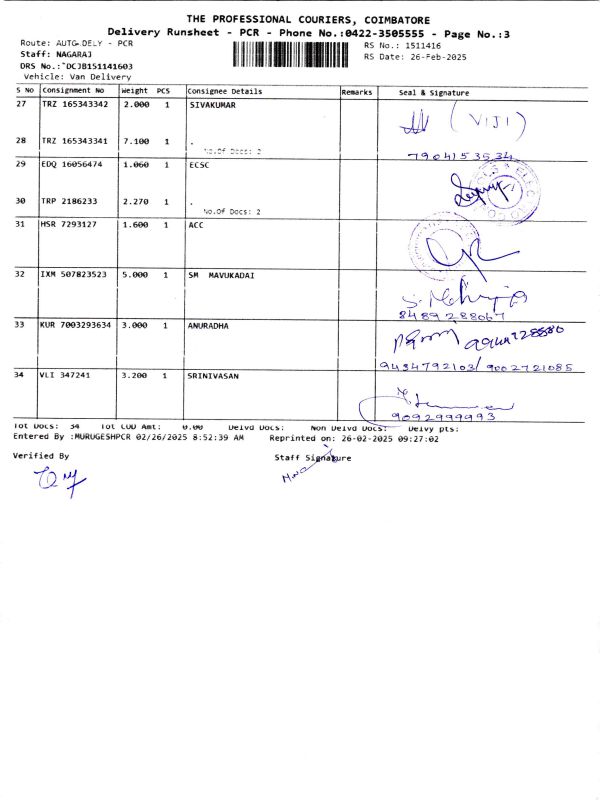 THE PROFESSIONAL COURIERS, COIMBATORE
Delivery Runsheet - PCR - Phone No.:0422-3505555 - Page No.:3
Route: AUTO DELY - PCR
Staff: NAGARAJ
DRS No.: DCJB151141603
Vehicle: Van Delivery
RS No.: 1511416
RS Date: 26-Feb-2025
S No Consignment No Weight PCS Consignee Details Remarks Seal & Signature
27 TRZ 165343342 2.000 1 SIVAKUMAR
(VIJI)
28 TRZ 165343341 7.100 1 .
No.Of Docs: 2
7904153534
29 EDQ 16056474 1.060 1 ECSC
30 TRP 2186233 2.270 1 .
No.Of Docs: 2
31 HSR 7293127 1.600 1 ACC
32 IXM 507823523 5.000 1 SM MAVUKADAI
8489288067
33 KUR 7003293634 3.000 1 ANURADHA
9434792103/ 9002721085
34 VLI 347241 3.200 1 SRINIVASAN
9092999993
Tot Docs: 34 Tot COD Amt: 0.00 Delvd Docs: Non Delvd Docs: Delvy pts:
Entered By :MURUGESHPCR 02/26/2025 8:52:39 AM Reprinted on: 26-02-2025 09:27:02
Verified By Staff Signature